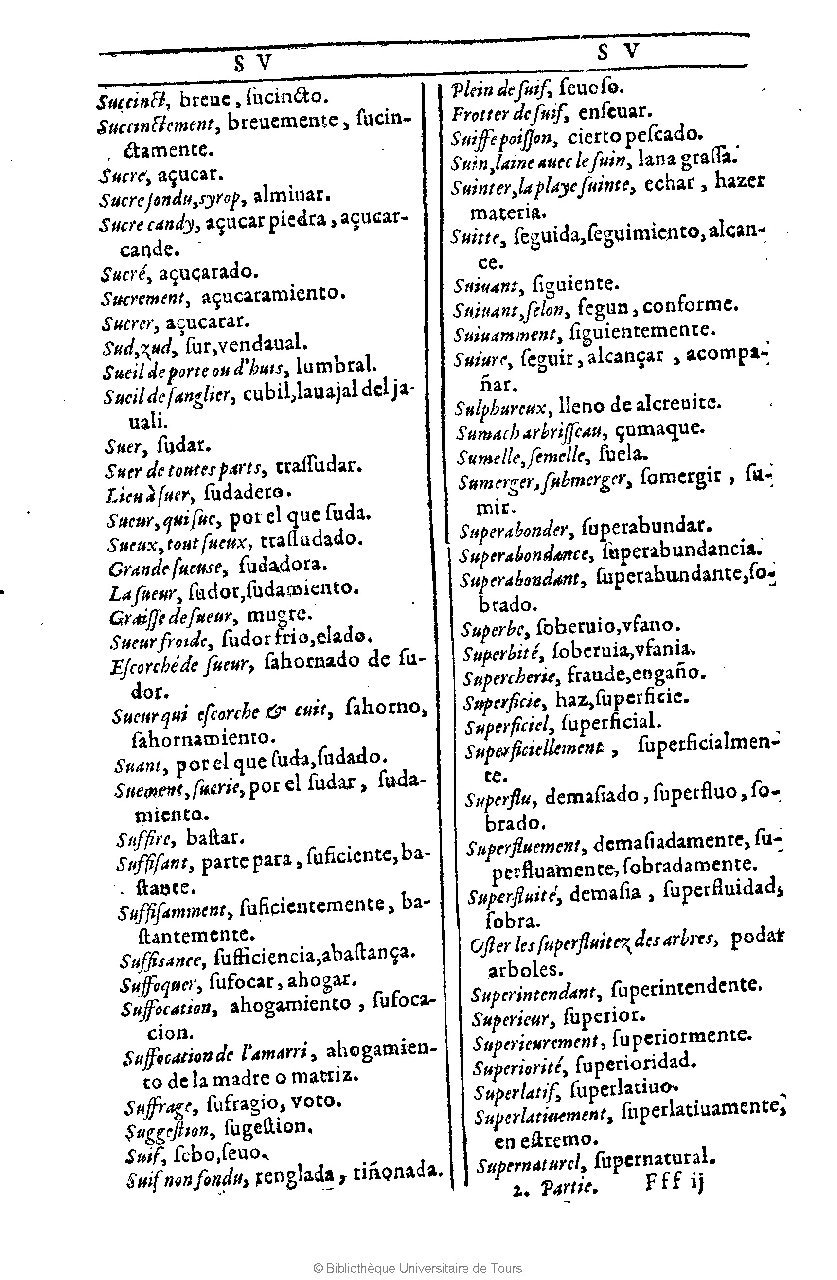 S V
S V
Succinct, breue, ſucincto.
Succinctement, breuemente, ſucin-
ctamente.
Sucre, açucar.
Sucre fondu, syrop, almiuar.
Sucre candy, açucar piedra, açucar-
cande.
Sucré, açuçarado.
Sucrement, açucaramiento.
Sucrer, açucarar.
Sud, zud, ſur, vendaual.
Sueil de porte ou d'huis, lumbral.
Sueil de ſanglier, cubil, lauajal del ja-
uali.
Suer, ſudar.
Suer de toutes parts, traſſudar.
Lieu à ſuer, ſudadero.
Sueur, qui ſue, por el que ſuda.
Sueux, tout ſueux, traſſudado.
Grande ſueuse, ſudadora.
La ſueur, ſudor, ſudamiento.
Graiſſe de ſueur, mugre.
Sueur froide, ſudor frio, elado.
Eſcorché de ſueur, ſahornado de ſu-
dor.
Sueur qui eſcorche & cuit, ſahorno,
ſahornamiento.
Suant, por el que ſuda, ſudado.
Suement, ſuerie, por el ſudar, ſuda-
miento.
Suffire, baſtar.
Suffiſant, parte para, ſuficiente, ba-
ſtante.
Suffiſamment, ſuficientemente, ba-
ſtantemente.
Suffisance, ſufficiencia, abaſtança.
Suffoquer, ſufocar, ahogar.
Suffocation, ahogamiento, ſufoca-
cion.
Suffocation de l'amarri, ahogamien-
to de la madre o matriz.
Suffrage, ſufragio, voto.
Suggeſtion, ſugeſtion.
Suif, ſebo, ſeuo.
Suif non fondu, renglada, riñonada.
Plein de ſuif, ſeuoſo.
Frotter de ſuif, enſeuar.
Suiffe poiſſon, cierto peſcado.
Suin, laine auec le ſuin, lana graſſa.
Suinter, la playe ſuinte, echar, hazer
materia.
Suitte, ſeguida, ſeguimiento, alcan-
ce.
Suiuant, ſiguiente.
Suiuant, ſelon, ſegun, conforme.
Suiuamment, ſiguientemente.
Suiure, ſeguir, alcançar, acompa-
ñar.
Sulphureux, lleno de alcreuite.
Sumach arbriſſeau, çumaque.
Sumelle, ſemelle, ſuela.
Sumerger, ſubmerger, ſomergir, ſu-
mir.
Superabonder, ſuperabundar.
Superabondance, ſuperabundancia.
Superabondant, ſuperabundante, ſo-
brado.
Superbe, ſoberuio, vfano.
Superbité, ſoberuia, vfania.
Supercherie, fraude, engaño.
Superficie, haz, ſuperficie.
Superficiel, ſuperficial.
Superficiellement, ſuperficialmen-
te.
Superflu, demaſiado, ſuperfluo, ſo-
brado.
Superfluement, demaſiadamente, ſu-
perfluamente, ſobradamente.
Superfluité, demaſia, ſuperfluidad,
ſobra.
Oſter les ſuperfluitez des arbres, podar
arboles.
Superintendant, ſuperintendente.
Superieur, ſuperior.
Superieurement, ſuperiormente.
Superiorité, ſuperioridad.
Superlatif, ſuperlatiuo.
Superlatiuement, ſuperlatiuamente,
en eſtremo.
Supernaturel, ſupernatural.
2. Partie. Fff ij
© Bibliothèque Universitaire de Tours